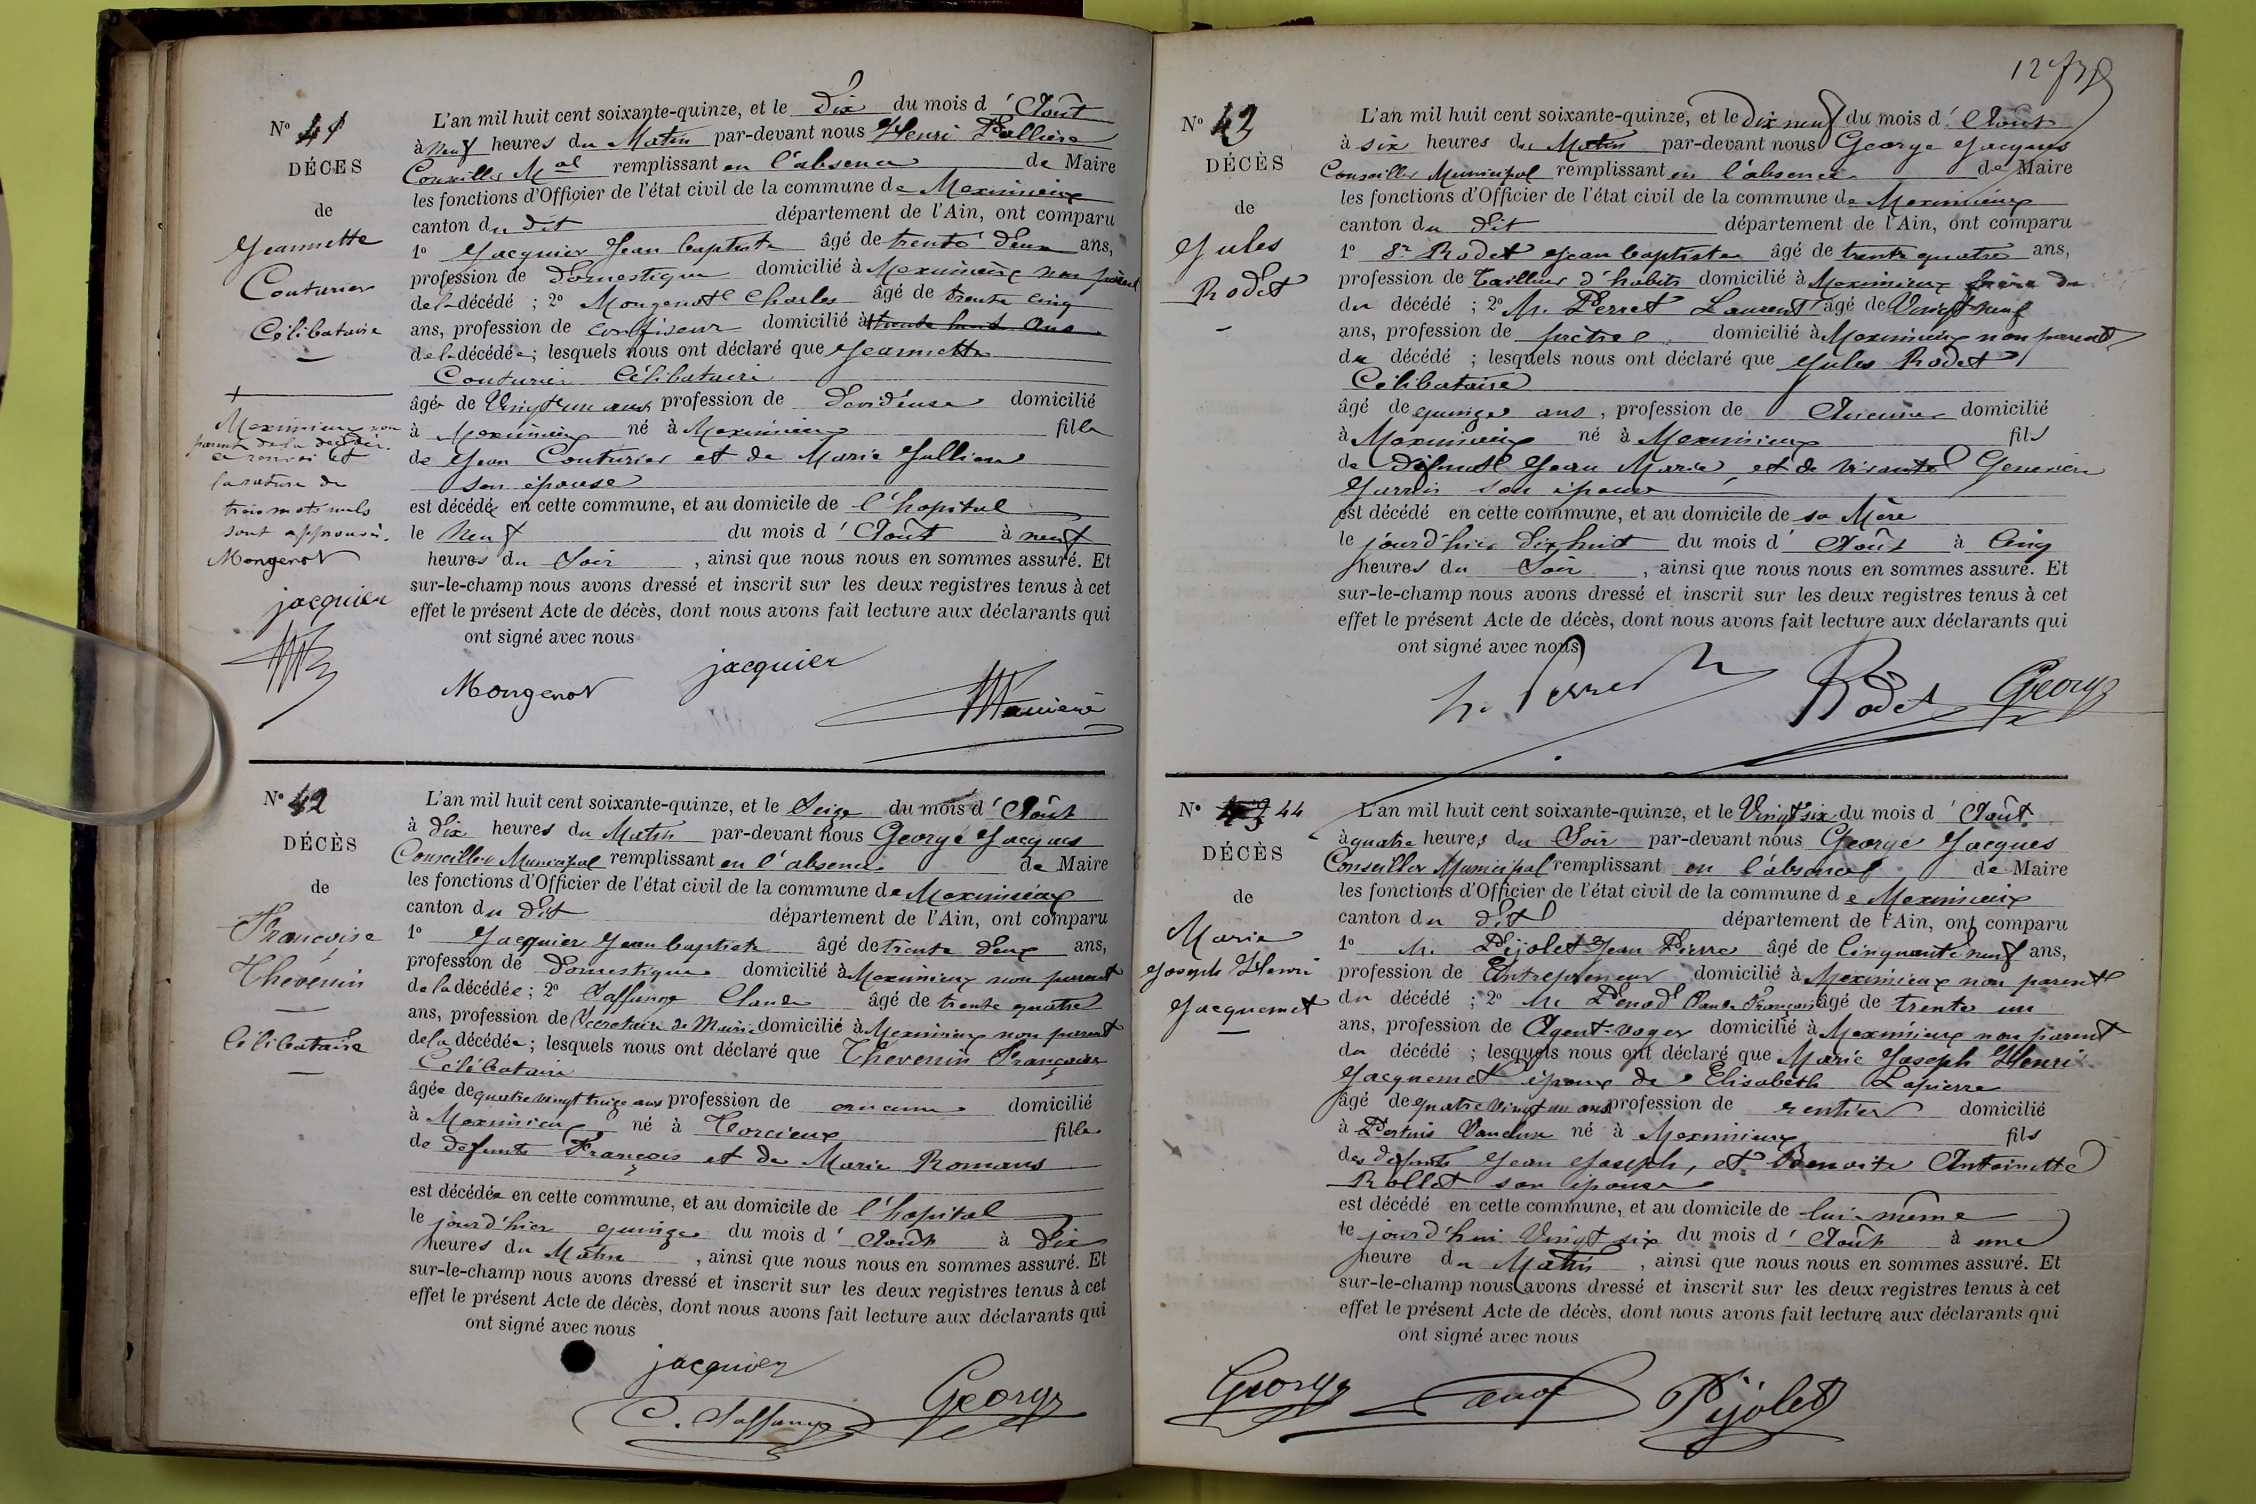 N° 41
DÉCES
de
Jeannette
Couturier
Célibataire
L'an mil huit cent soixante-quinze, et le Dix du mois d'Août
à neuf heures du Matin par-devant nous Henri
Conseiller Mal remplissant en l'absence de Maire
les fonctions d'Officier de l'état civil de la commune de Meximieux
canton du dit département de l'Ain, ont comparu
1° Jacquier Jean baptiste âgé de trente deux ans,
profession de Domestique domicilié à Meximieux non parent
de la décédé ; 2° Mongenot Charles âgé de trente cinq
ans, profession de confiseur domicilié à trente huit ans
de la décédée ; lesquels nous ont déclaré que Jeannette
Couturier Célibataire
âgée de Vingt un ans profession de Devideuse domicilié
à Meximieux né à Meximieux fille
de Jean Couturier et de Marie Jullien
son épouse
est décédée en cette commune, et au domicile de l'hopital
le Neuf du mois d'Août à neuf
heures du Soir , ainsi que nous nous en sommes assuré. Et
sur-le-champ nous avons dressé et inscrit sur les deux registres tenus à cet
effet le présent Acte de décès, dont nous avons fait lecture aux déclarants qui
ont signé avec nous
Meximieux non
parent de la décédée.
ce renvoi et
la rature de
trois mots nuls
sont approuvés.
Mongenot
jacquier
Mongenot jacquier
N° 42
DÉCÈS
de
Françoise
Thevenin
Célibataire
L'an mil huit cent soixante-quinze, et le Seize du mois d'Août
à Dix heures du Matin par-devant nous George Jacques
Conseiller Municipal remplissant en l'absence de Maire
les fonctions d'Officier de l'état civil de la commune de Meximieux
canton du dit département de l'Ain, ont comparu
1° Jacquier Jean baptiste âgé de trente deux ans,
profession de Domestique domicilié à Meximieux non parent
de la décédée ; 2° Saffange Claude âgé de trente quatre
ans, profession de Secretaire de Mairie domicilié à Meximieux non parent
de la décédée ; lesquels nous ont déclaré que Thevenin Françoise
Célébataire
âgée de quatre vingt treize ans profession de aucune domicilié
à Meximieux né à Torcieux fille
de defunts François et de Marie Romans
est décédée en cette commune, et au domicile de l'hopital
le jourd'hier quinze du mois d'Août à Dix
heures du Matin , ainsi que nous nous en sommes assuré. Et
sur-le-champ nous avons dressé et inscrit sur les deux registres tenus à cet
effet le présent Acte de décès, dont nous avons fait lecture aux déclarants qui
ont signé avec nous
jacquier
C. Saffange George
N° 43
DÉCÈS
de
Jules
Rodet
L'an mil huit cent soixante-quinze, et le Dix neuf du mois d'Août
à six heures du Matin par-devant nous George Jacques
Conseiller Municipal remplissant en l'absence de Maire
les fonctions d'Officier de l'état civil de la commune de Meximieux
canton du dit département de l'Ain, ont comparu
1° Sr Rodet Jean baptiste âgé de trente quatre ans,
profession de Tailleur d'habits domicilié à Meximieux frère du
du décédé ; 2° Mr. Perret Laurent âgé de Vingt neuf
ans, profession de prêtre domicilié à Meximieux non parent
du décédé ; lesquels nous ont déclaré que Jules Rodet
Célibataire
âgé de quinze ans, profession de Aucune domicilié
à Meximieux né à Meximieux fils
de défunt Jean Marie, et de vivante Genevien
son épouse
est décédé en cette commune, et au domicile de sa Mère
le jourd'hier Dix huit du mois d'Août à Cinq
heures du Soir , ainsi que nous nous en sommes assuré. Et
sur-le-champ nous avons dressé et inscrit sur les deux registres tenus à cet
effet le présent Acte de décès, dont nous avons fait lecture aux déclarants qui
ont signé avec nous
Perret Rodet George
N° 44
DÉCÈS
de
Marie
Joseph Henri
Jacquemet
L'an mil huit cent soixante-quinze, et le Vingt six du mois d'Août
à quatre heures du Soir par-devant nous George Jacques
Conseiller Municipal remplissant en l'absence de Maire
les fonctions d'Officier de l'état civil de la commune de Meximieux
canton du dit département de l'Ain, ont comparu
1° Mr. Pijolet Jean Pierre âgé de Cinquante neuf ans,
profession de Entrepreneur domicilié à Meximieux non parent
du décédé ; 2° Mr Penod Claude François âgé de trente un
ans, profession de Agent-voyer domicilié à Meximieux non parent
du décédé ; lesquels nous ont déclaré que Marie Joseph Henri
Jacquemet époux de Elisabeth Lapierre
âgé de quatre vingt un ans profession de rentier domicilié
à Pertuis Vaucluse né à Meximieux fils
des défunts Jean Joseph, et Benoite Antoinette
Rollet son épouse
est décédé en cette commune, et au domicile de lui-même
le jourd'hui Vingt six du mois d'Août à une
heure du Matin , ainsi que nous nous en sommes assuré. Et
sur-le-champ nous avons dressé et inscrit sur les deux registres tenus à cet
effet le présent Acte de décès, dont nous avons fait lecture aux déclarants qui
ont signé avec nous
George Pijolet